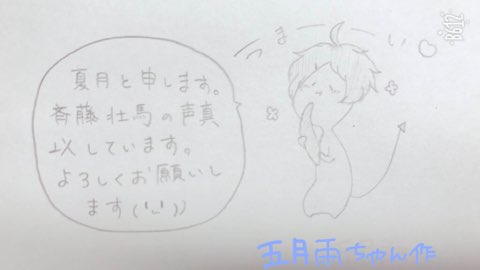 夏月と申します。
斉藤壮馬の声真
似しています。
よろしくお願いし
ます(*ˊᵕˋ))
うまーい♡
B612
五月雨ちゃん作